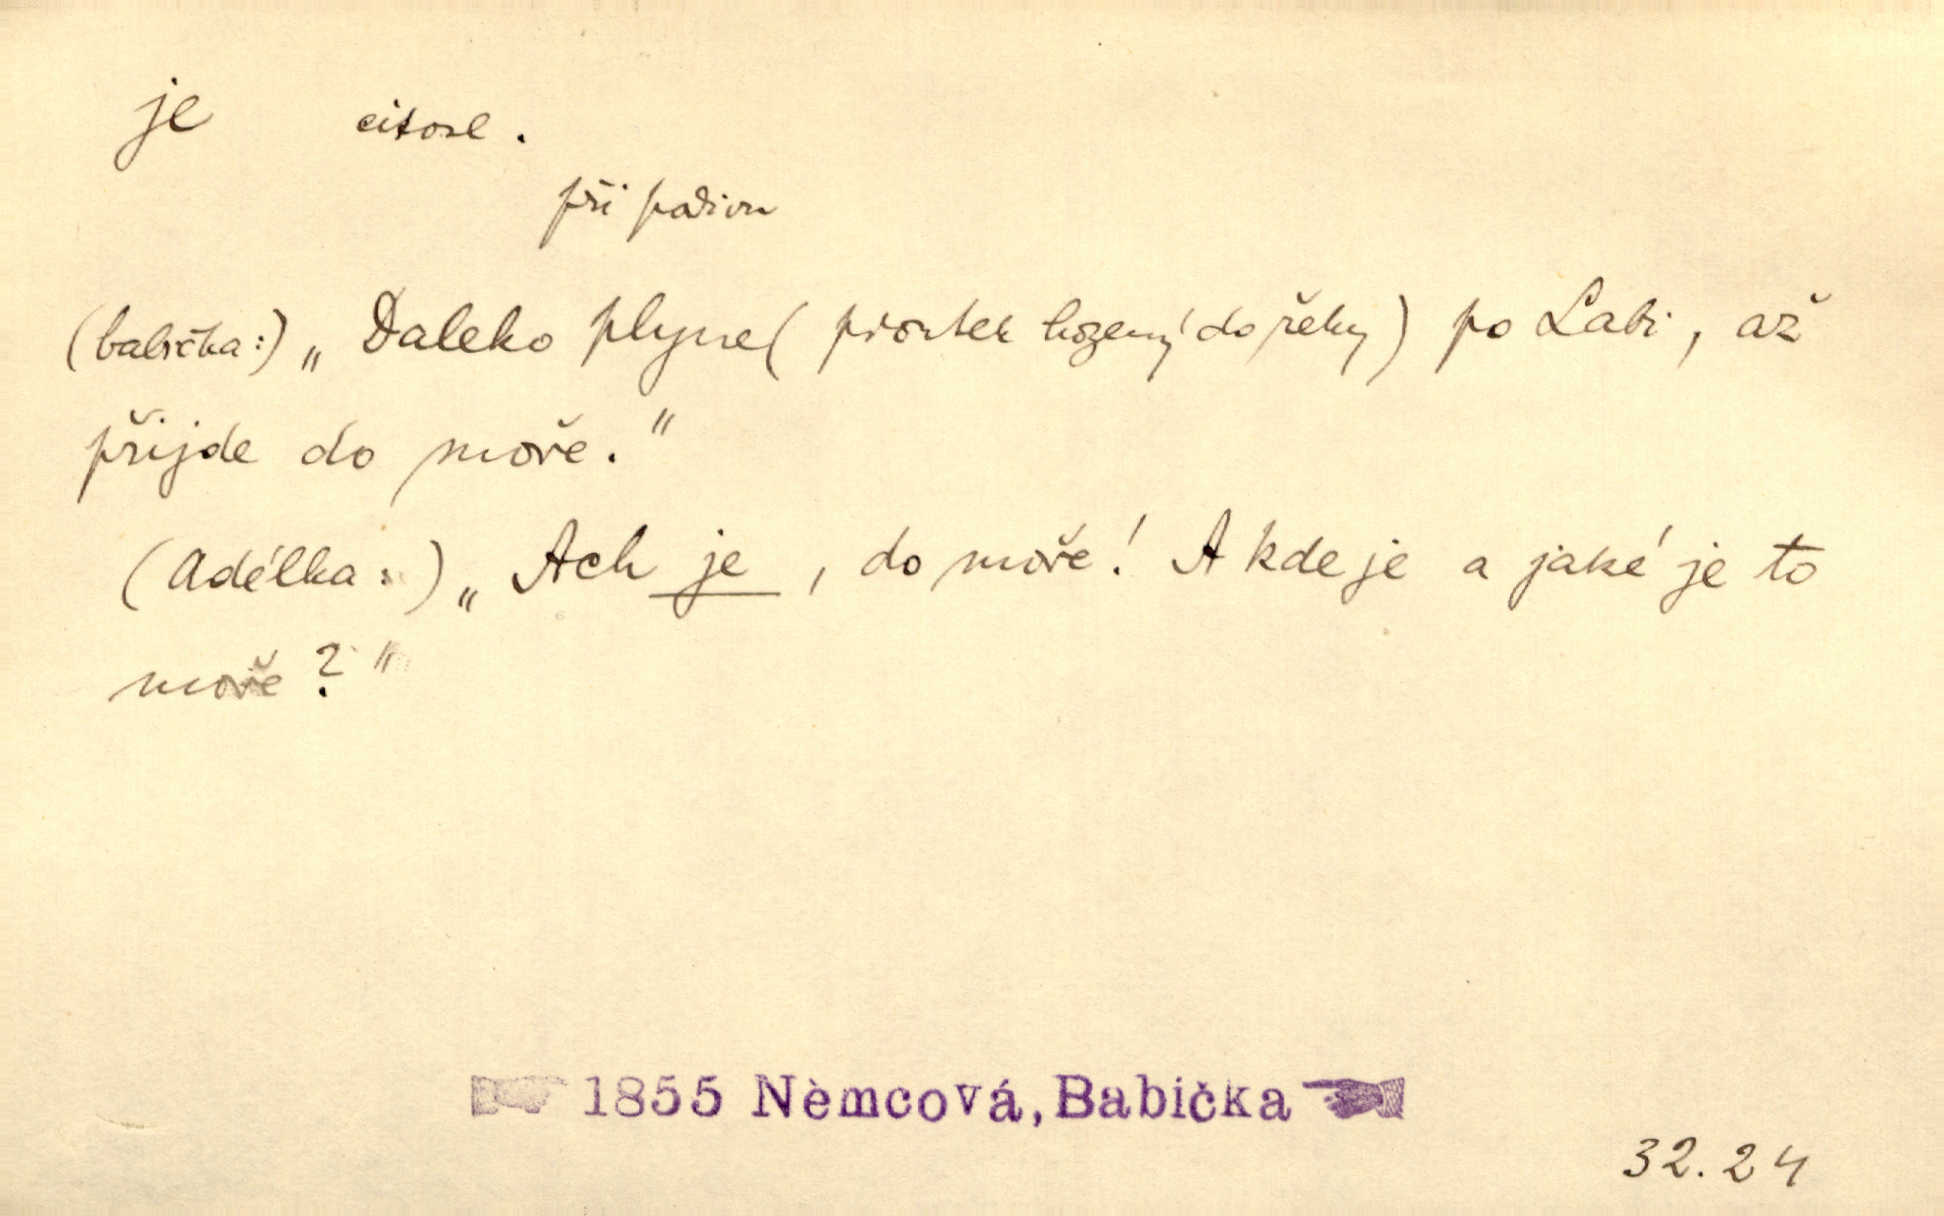 je citosl.
při podivu
(babička:) „Daleko plyne( proutek hozený do řeky) po Labi, až
přijde do moře."
(Adélka:) „Ach je, do moře! A kde je a jaké je to
moře?"
1855 Nèmcová, Babička
32.24